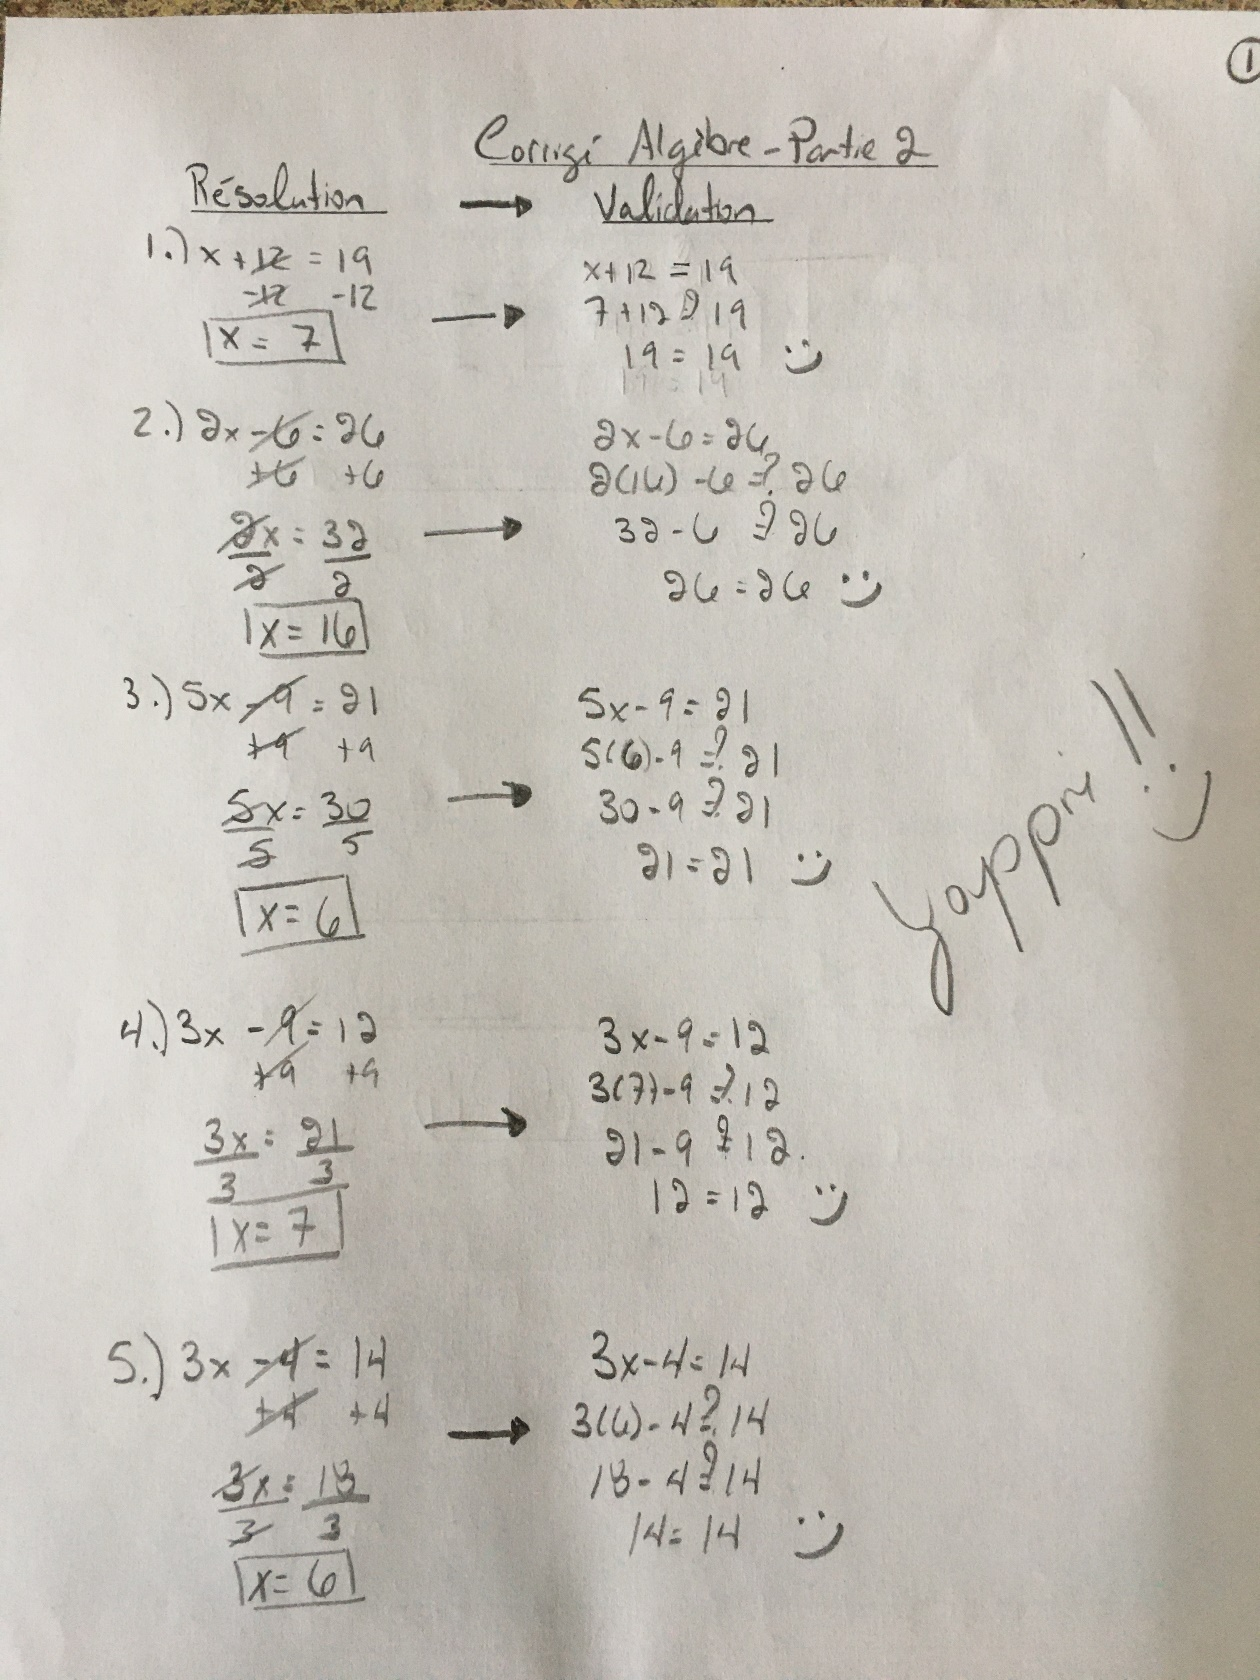 1
Corrigé Algèbre - Partie 2
Résolution → Validation
1.) x + 12 = 19
-12 -12
x = 7
→
x + 12 = 19
7 + 12 ? 19
19 = 19 :)
2.) 2x - 6 = 26
+6 +6
2x = 32
2 2
x = 16
→
2x - 6 = 26
2(16) - 6 =? 26
32 - 6 =? 26
26 = 26 :)
3.) 5x - 9 = 21
+9 +9
5x = 30
5 5
x = 6
→
5x - 9 = 21
5(6) - 9 =? 21
30 - 9 =? 21
21 = 21 :)
Yappii !! :)
4.) 3x - 9 = 12
+9 +9
3x = 21
3 3
x = 7
→
3x - 9 = 12
3(7) - 9 =? 12
21 - 9 =? 12.
12 = 12 :)
5.) 3x - 4 = 14
+4 +4
3x = 18
3 3
x = 6
→
3x - 4 = 14
3(6) - 4 =? 14
18 - 4 =? 14
14 = 14 :)